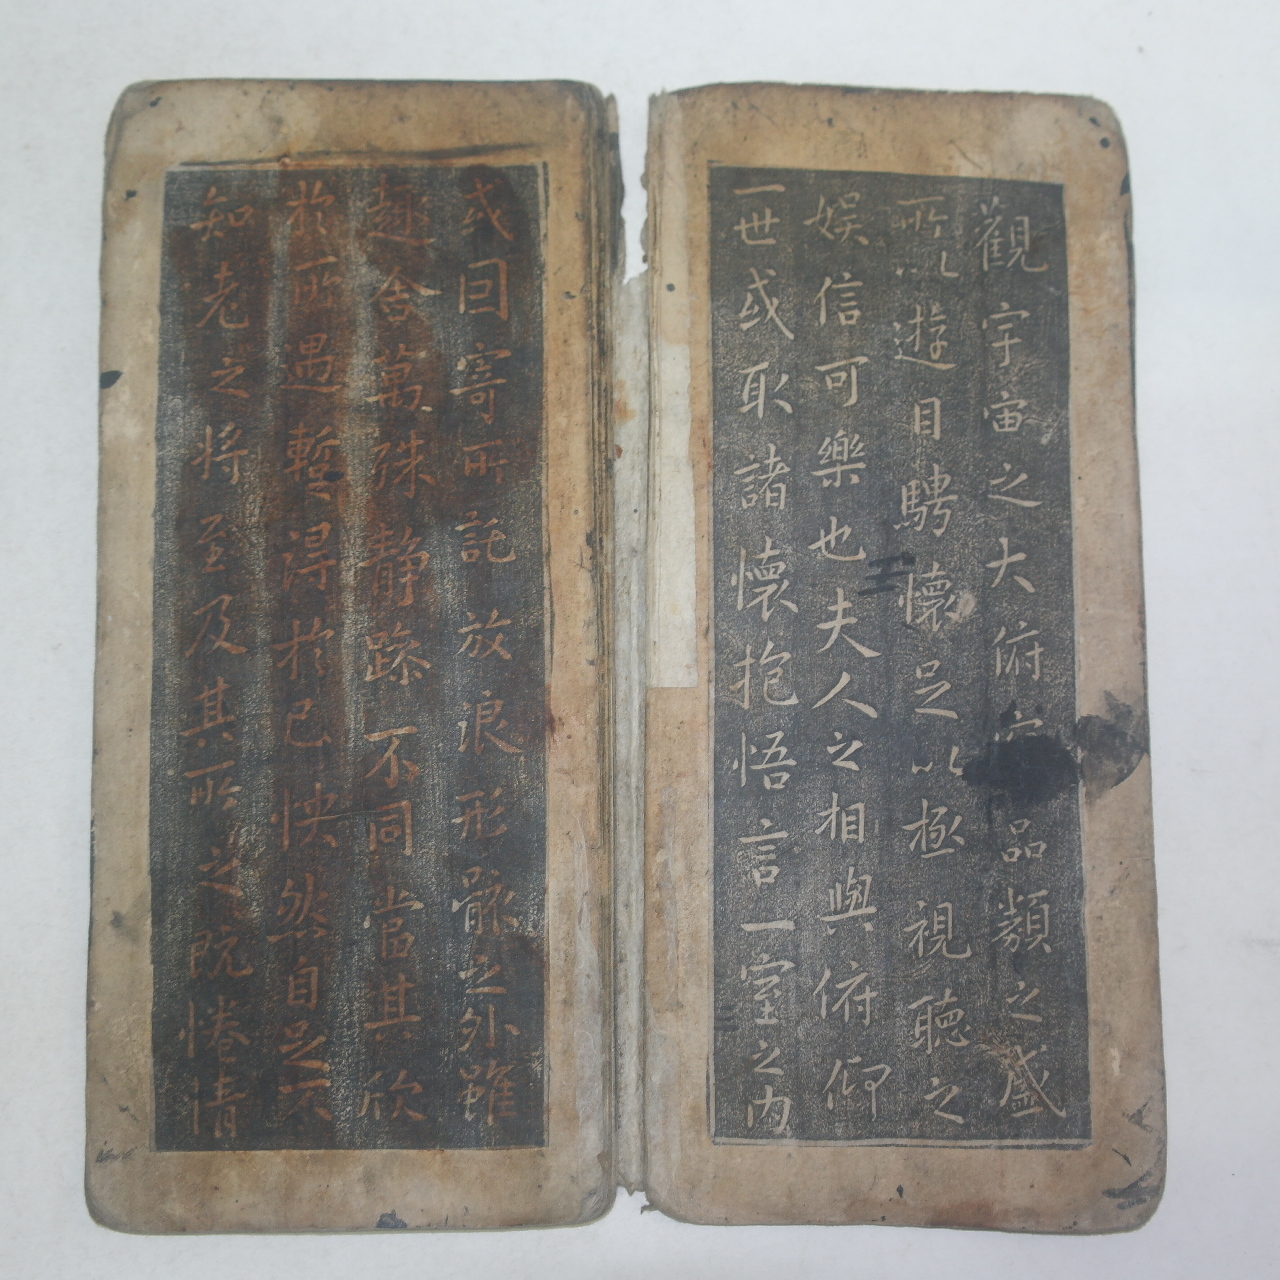 觀宇宙之大俯品類之盛
所以遊目騁懷足以極視聽之
娛信可樂也夫人之相與俯仰
一世或取諸懷抱悟言一室之內
或因寄所託放浪形骸之外雖
趣舍萬殊静躁不同當其欣
於所遇暫得於己怏然自足不
知老之將至及其所之既惓情